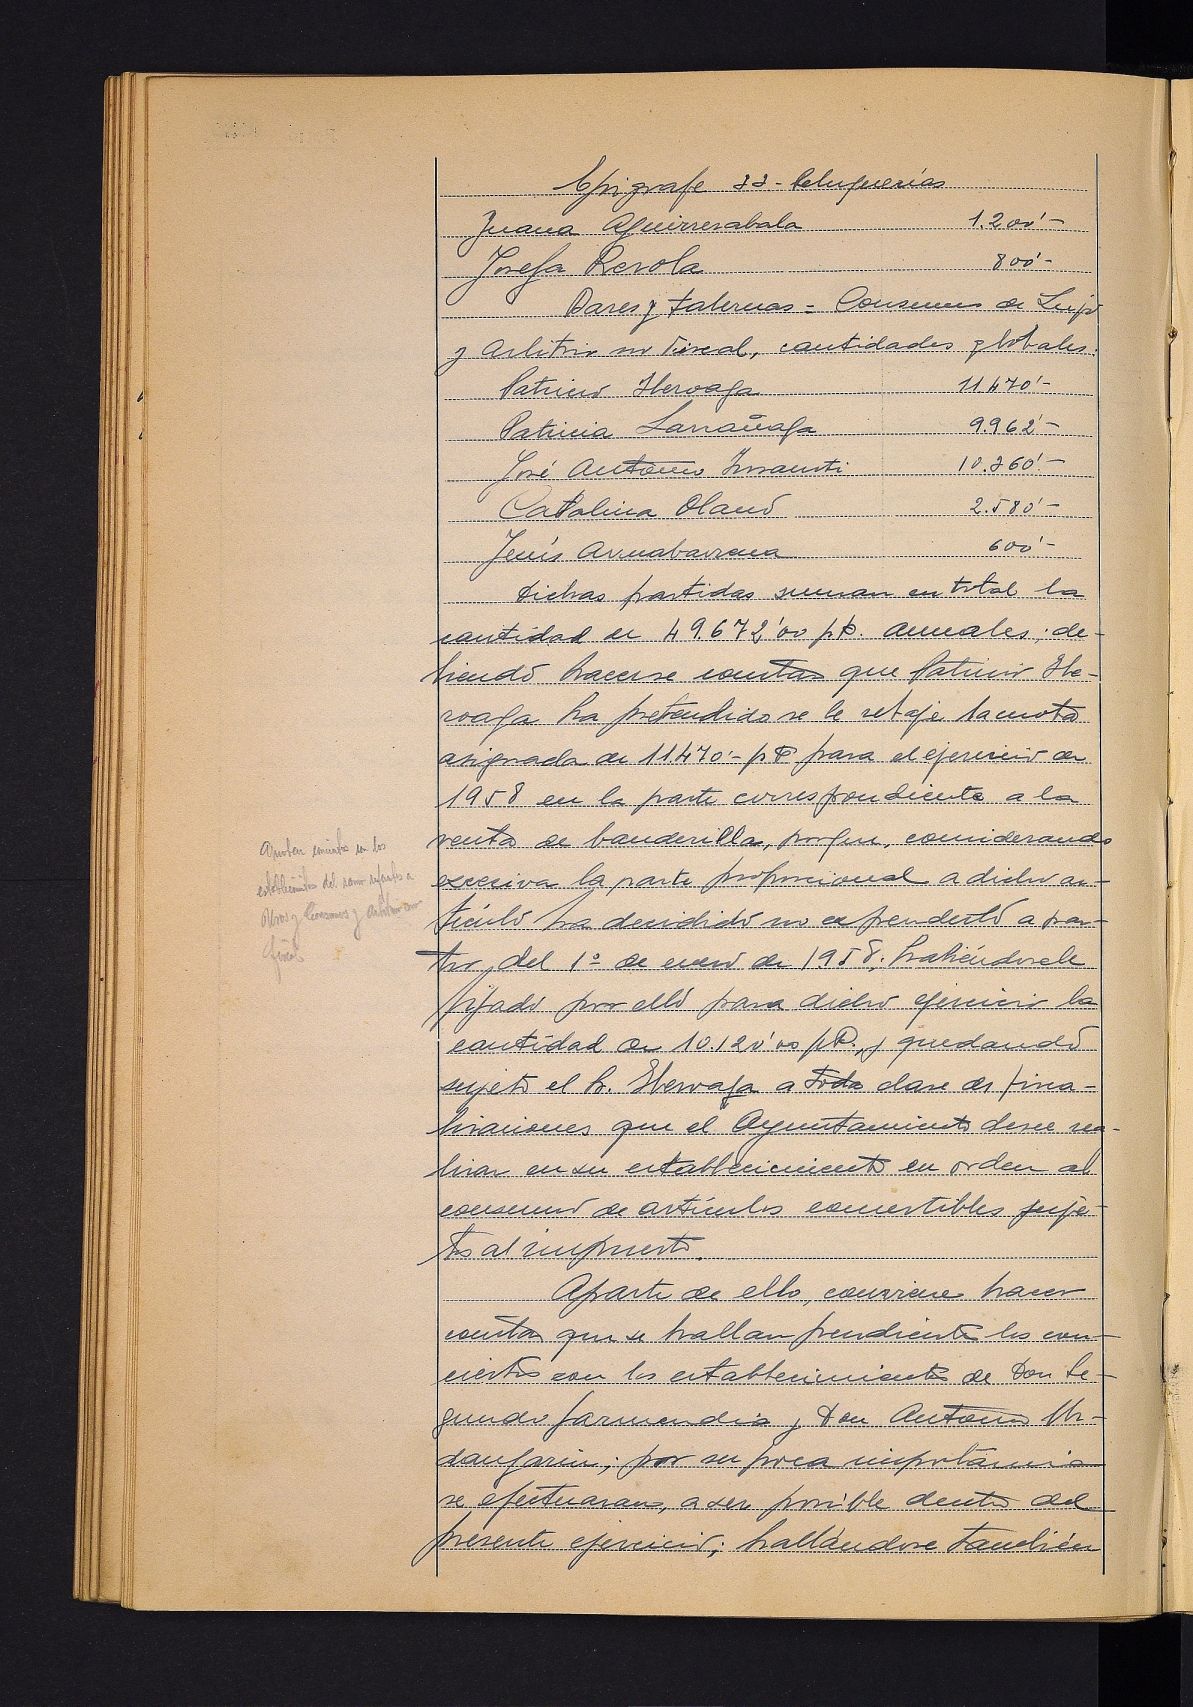 Epígrafe 33 - Peluquerías
Juana Aguirrezabala 1.200'-
Josefa Rezola 800'-
Bares y tabernas = Consumos de Lujo
y Arbitrio no Fiscal, cantidades globales:
Patricio Iteroaga 11.470'-
Patricia Larrañaga 9.962'-
José Antonio Insausti 10.360'-
Catalina Olano 2.580'-
Jesús Arruabarrena 600'-
Dichas partidas suman en total la
cantidad de 49.672'00 pts. anuales; de-
biendo hacerse constar que Patricio Ite-
roaga ha pretendido se le rebaje la cuota
asignada de 11.470'- pts para el ejercicio de
1958 en la parte correspondiente a la
venta de banderilla, porque, considerando
excesiva la parte proporcional a dicho ar-
tículo ha decidido no expenderlo a par-
tir del 1º de enero de 1958; habiéndosele
fijado por ello para dicho ejercicio la
cantidad de 10.120'00 pts., y quedando
sujeto el Sr. Iteroaga a toda clase de fisca-
lizaciones que el Ayuntamiento desee rea-
lizar en su establecimiento en orden al
consumo de artículos comestibles suje-
tos al impuesto.
Aparte de ello, conviene hacer
constar que se hallan pendientes los con-
ciertos con los establecimientos de Don Se-
gundo Garmendia y Don Antonio Ur-
dangarin; por su poca importancia
se efectuaran, a ser posible dentro del
presente ejercicio; hallándose también
Aprobar conciertos en los
establecimientos del ramo sujetos a
Consumos y Arbitrio no
fiscal